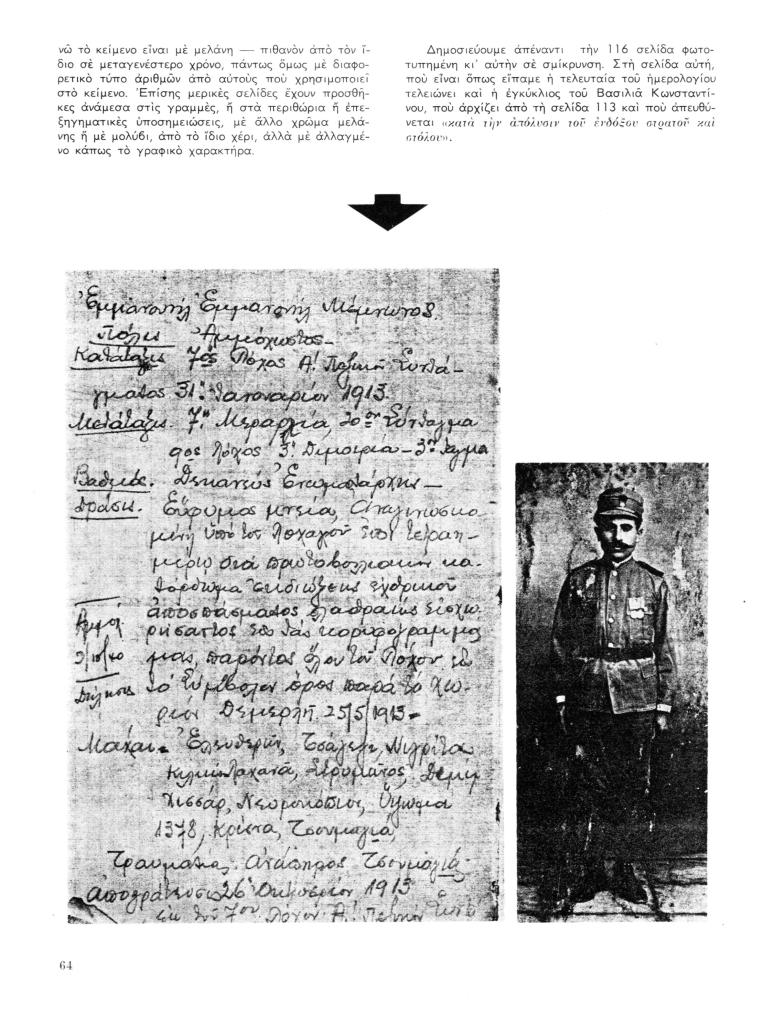 νῶ τὸ κείμενο εἶναι μὲ μελάνη — πιθανὸν ἀπὸ τὸν ἴ-
διο σὲ μεταγενέστερο χρόνο, πάντως ὅμως μὲ διαφο-
ρετικὸ τύπο ἀριθμῶν ἀπὸ αὐτοὺς ποὺ χρησιμοποιεῖ
στὸ κείμενο. Ἐπίσης μερικὲς σελίδες ἔχουν προσθῆ-
κες ἀνάμεσα στὶς γραμμές, ἢ στὰ περιθώρια ἢ ἐπε-
ξηγηματικὲς ὑποσημειώσεις, μὲ ἄλλο χρῶμα μελά-
νης ἢ μὲ μολύβι, ἀπὸ τὸ ἴδιο χέρι, ἀλλὰ μὲ ἀλλαγμέ-
νο κάπως τὸ γραφικὸ χαρακτήρα.
Δημοσιεύουμε ἀπέναντι τὴν 116 σελίδα φωτο-
τυπημένη κι' αὐτὴν σὲ σμίκρυνση. Στὴ σελίδα αὐτή,
ποὺ εἶναι ὅπως εἴπαμε ἡ τελευταία τοῦ ἡμερολογίου
τελειώνει καὶ ἡ ἐγκύκλιος τοῦ Βασιλιᾶ Κωνσταντί-
νου, ποὺ ἀρχίζει ἀπὸ τὴ σελίδα 113 καὶ ποὺ ἀπευθύ-
νεται «κατὰ τὴν ἀπόλυσιν τοῦ ἐνδόξου στρατοῦ καὶ
στόλου».
Ἐμμανουὴλ Ἐμμανουὴλ Μέμνωνος.
Πόλις Ἀμμόχωστος-
Κατάταξις 7ος Λόχος Α! Πεζικοῦ Συντά-
γματος 31! Ἰανουαρίου 1913.
Μετάταξις. 7η Μεραρχία, 20ον Σύνταγμα
9ος Λόχος 3! Διμοιρία - 3ον
Βαθμός. Δεκανεὺς Ἐνωμοτάρχης -
Δράσις. Εὔφημος μνεία, Ἀναγινωσκο-
μένη ὑπὸ τοῦ Λοχαγοῦ ἐπὶ τετραη-
μερίᾳ διὰ κα-
τόρθωμα ἐκδιώξεως ἐχθρικοῦ
ἀποσπάσματος λαθραίως εἰσχω-
ρήσαντος εἰς τὰς κορυφογραμμάς
μας, παρόντος ὅλου τοῦ Λόχου εἰς
τὸ Σύμβολον ὄρος παρὰ τὸ χω-
ρίον Δεμερλῆ 25/5/1913-
Μάχαι - Ἐλευθερῶν, Τσάγεζι, Νιγρίτα
Κιλκὶς Λαχανᾶ, Στρυμῶνος, Δεμὶρ
Χισσάρ, Νευροκόπιον, Ὕψωμα
1378, Κρέσνα, Τζουμαγιά,
Τραυματίας ἀνάπηρος Τζουμαγιᾶ-
26 Ὀκτωβρίου 1913
ἐκ τοῦ 7ου Λόχου Α! Πεζικοῦ
64